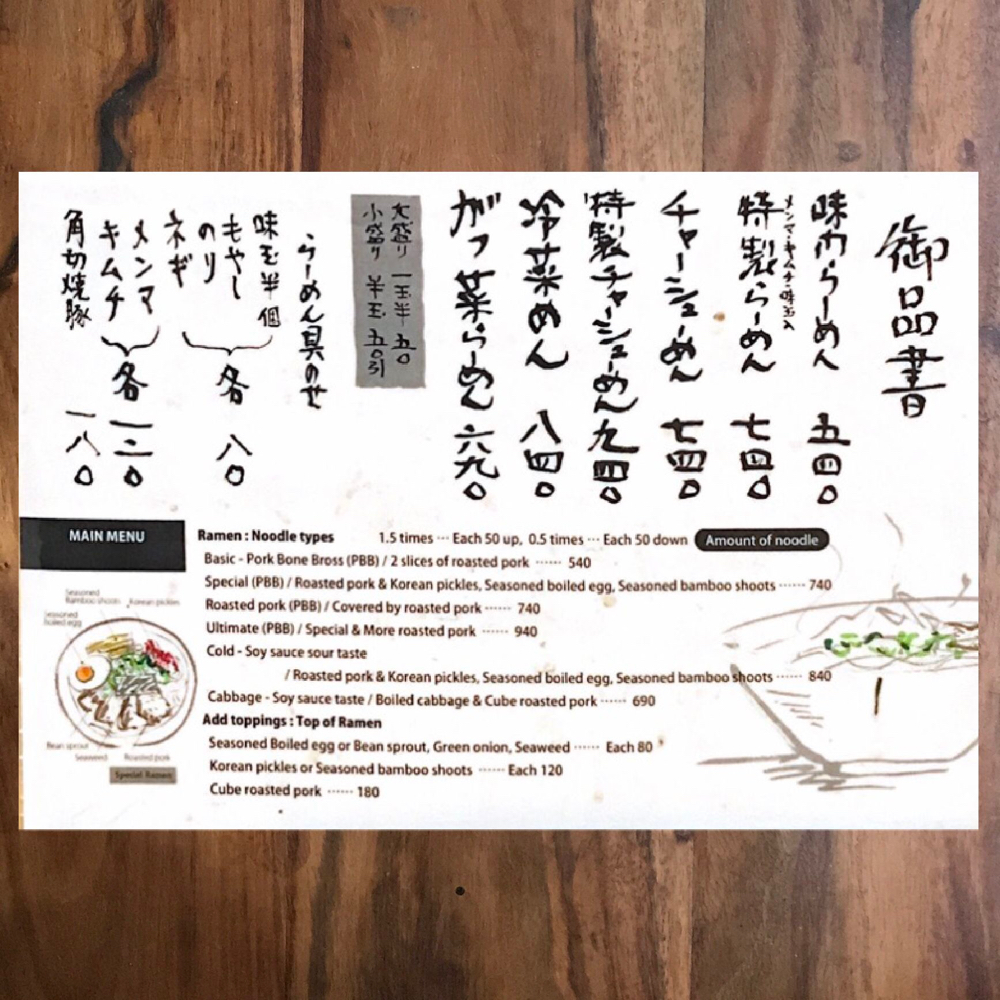 御品書
味肉らーめん 五四〇
メンマ・キムチ・味玉入
特製らーめん 七四〇
チャーシューめん 七四〇
特製チャーシューめん 九四〇
冷菜めん 八四〇
がつ菜らーめん 六九〇
大盛り 一玉半 五〇
小盛り 半玉 五〇引
らーめん具のせ
味玉半個
もやし
のり
ネギ
各 八〇
メンマ
キムチ
各 一二〇
角切焼豚 一八〇
MAIN MENU
Ramen : Noodle types 1.5 times ··· Each 50 up, 0.5 times ··· Each 50 down Amount of noodle
Basic - Pork Bone Bross (PBB) / 2 slices of roasted pork ······ 540
Special (PBB) / Roasted pork & Korean pickles, Seasoned boiled egg, Seasoned bamboo shoots ······ 740
Roasted pork (PBB) / Covered by roasted pork ······ 740
Ultimate (PBB) / Special & More roasted pork ······ 940
Cold - Soy sauce sour taste
/ Roasted pork & Korean pickles, Seasoned boiled egg, Seasoned bamboo shoots ······ 840
Cabbage - Soy sauce taste / Boiled cabbage & Cube roasted pork ······ 690
Add toppings : Top of Ramen
Seasoned Boiled egg or Bean sprout, Green onion, Seaweed ······ Each 80
Korean pickles or Seasoned bamboo shoots ······ Each 120
Cube roasted pork ······ 180
Seasoned
Bamboo shoots
Korean pickles
Seasoned
boiled egg
Bean sprout
Seaweed
Roasted pork
Special Ramen